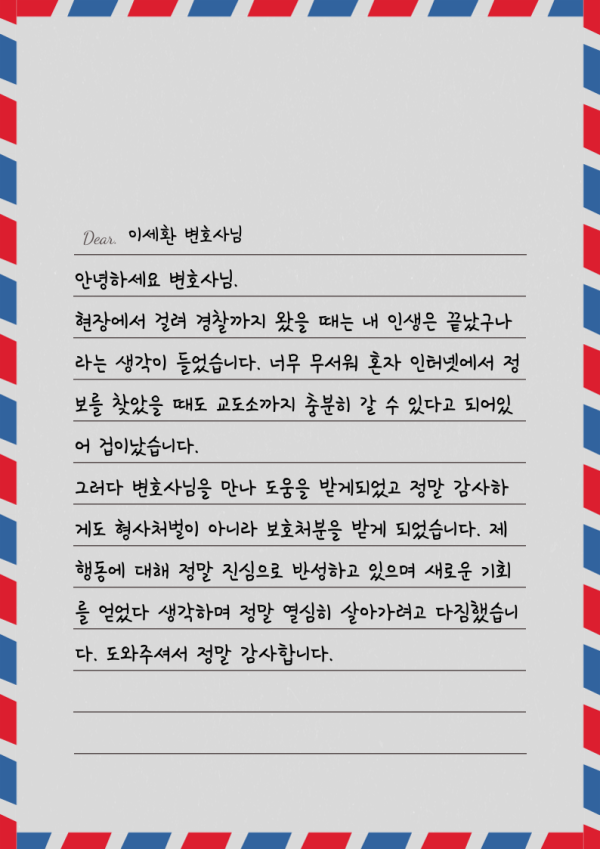 Dear. 이세환 변호사님
안녕하세요 변호사님.
현장에서 걸려 경찰까지 왔을 때는 내 인생은 끝났구나
라는 생각이 들었습니다. 너무 무서워 혼자 인터넷에서 정
보를 찾았을 때도 교도소까지 충분히 갈 수 있다고 되어있
어 겁이났습니다.
그러다 변호사님을 만나 도움을 받게되었고 정말 감사하
게도 형사처벌이 아니라 보호처분을 받게 되었습니다. 제
행동에 대해 정말 진심으로 반성하고 있으며 새로운 기회
를 얻었다 생각하며 정말 열심히 살아가려고 다짐했습니
다. 도와주셔서 정말 감사합니다.